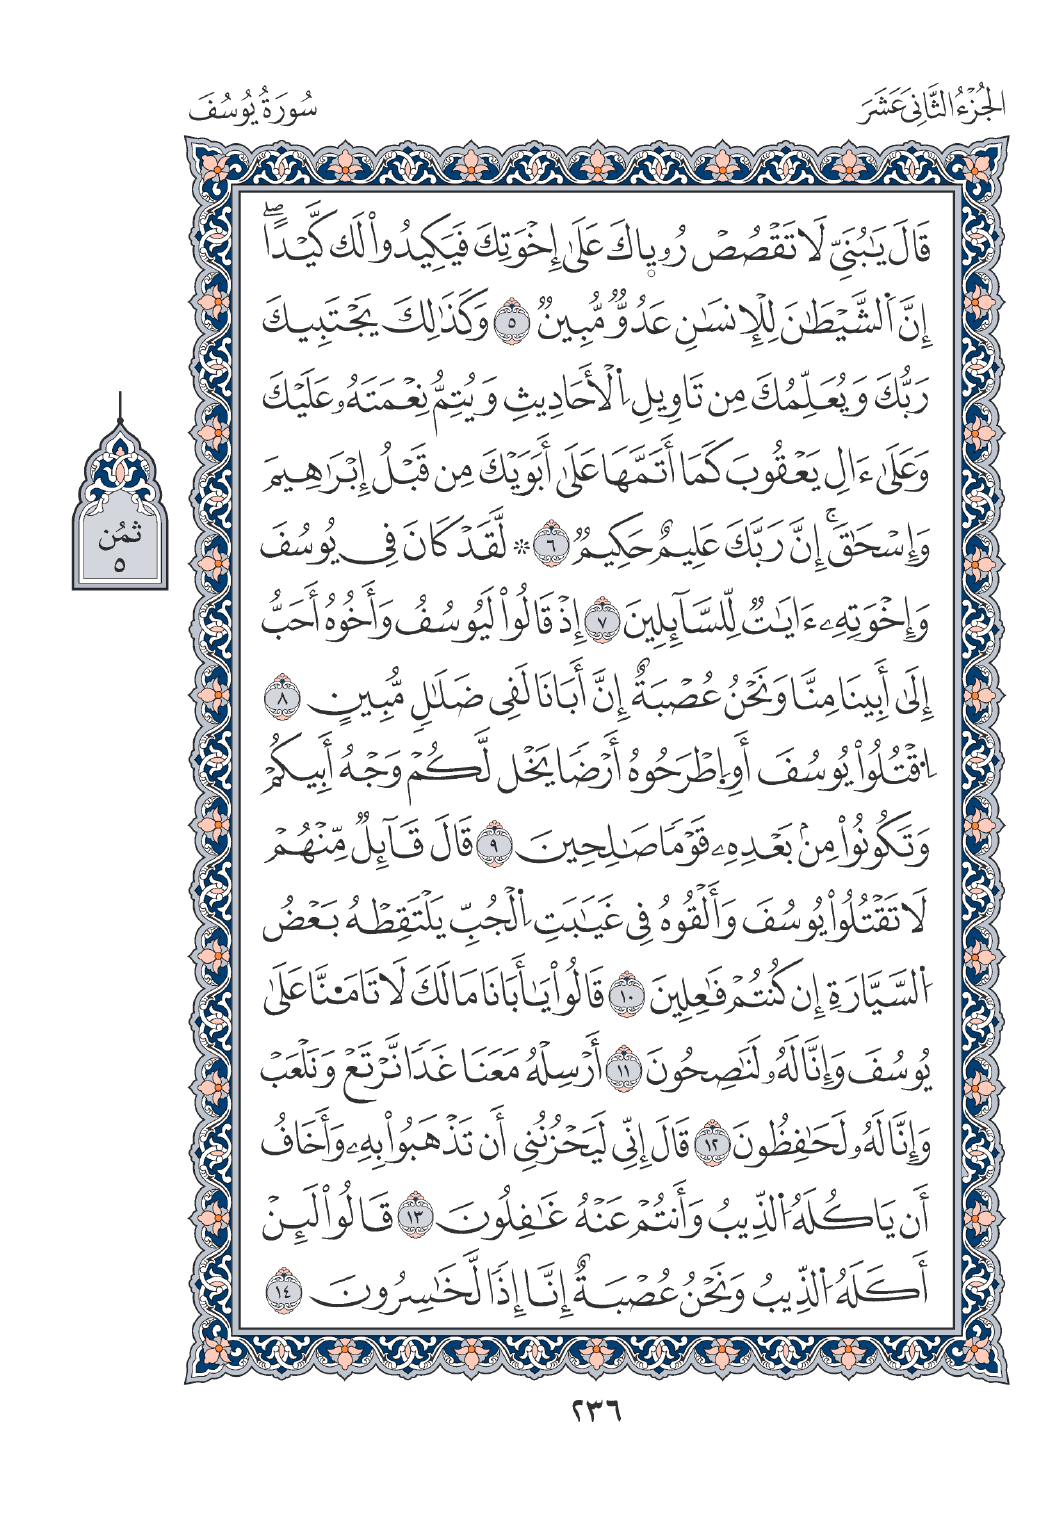 الجُزْءُ الثَّانِيَ عَشَرَ
سُورَةُ يُوسُفَ
قَالَ يَٰبُنَيِّ لَا تَقْصُصْ رُءْيٜاكَ عَلَىٰ إِخْوَتِكَ فَيَكِيدُواْ لَك كَّيْدًاۖ
إِنَّ اَ۬لشَّيْطَٰنَ لِلْإِنسَٰنِ عَدُوٌّ مُّبِينٌ ٥ وَكَذَٰلِكَ يَجْتَبِيكَ
رَبُّكَ وَيُعَلِّمُكَ مِن تَاوِيلِ اِ۬لْأَحَادِيثِ وَيُتِمُّ نِعْمَتَهُۥ عَلَيْكَ
وَعَلَىٰ ءَالِ يَعْقُوبَ كَمَا أَتَمَّهَا عَلَىٰ أَبَوَيْكَ مِن قَبْلُ إِبْرَٰهِيمَ
وَإِسْحَٰقَۚ إِنَّ رَبَّكَ عَلِيمٌ حَكِيمٌ ٦ ۞ لَّقَدْ كَانَ فِي يُوسُفَ
وَإِخْوَتِهِۦ ءَايَٰتٌ لِّلسَّآئِلِينَ ٧ إِذْ قَالُواْ لَيُوسُفُ وَأَخُوهُ أَحَبُّ
إِلَىٰ أَبِينَا مِنَّا وَنَحْنُ عُصْبَةٌ إِنَّ أَبَانَا لَفِي ضَلَٰلٍ مُّبِينٍ ٨
اِ۟قْتُلُواْ يُوسُفَ أَوِ اِ۪طْرَحُوهُ أَرْضًا يَخْل لَّكُمْ وَجْهُ أَبِيكُمْ
وَتَكُونُواْ مِنۢ بَعْدِهِۦ قَوْمًا صَٰلِحِينَ ٩ قَالَ قَآئِلٌ مِّنْهُمْ
لَا تَقْتُلُواْ يُوسُفَ وَأَلْقُوهُ فِي غَيَٰبَتِ اِ۬لْجُبِّ يَلْتَقِطْهُ بَعْضُ
اُ۬لسَّيَّارَةِ إِن كُنتُمْ فَٰعِلِينَ ١٠ قَالُواْ يَٰأَبَانَا مَالَكَ لَا تَامَ۬نَّا عَلَىٰ
يُوسُفَ وَإِنَّا لَهُۥ لَنَٰصِحُونَ ١١ أَرْسِلْهُ مَعَنَا غَدًا نَّرْتَعْ وَنَلْعَبْ
وَإِنَّا لَهُۥ لَحَٰفِظُونَ ١٢ قَالَ إِنِّي لَيَحْزُنُنِي أَن تَذْهَبُواْ بِهِۦ وَأَخَافُ
أَن يَاكُلَهُ اُ۬لذِّيبُ وَأَنتُمْ عَنْهُ غَٰفِلُونَ ١٣ قَالُواْ لَئِنْ
أَكَلَهُ اُ۬لذِّيبُ وَنَحْنُ عُصْبَةٌ إِنَّا إِذًا لَّخَٰسِرُونَ ١٤
ثمُن
٥
٢٣٦